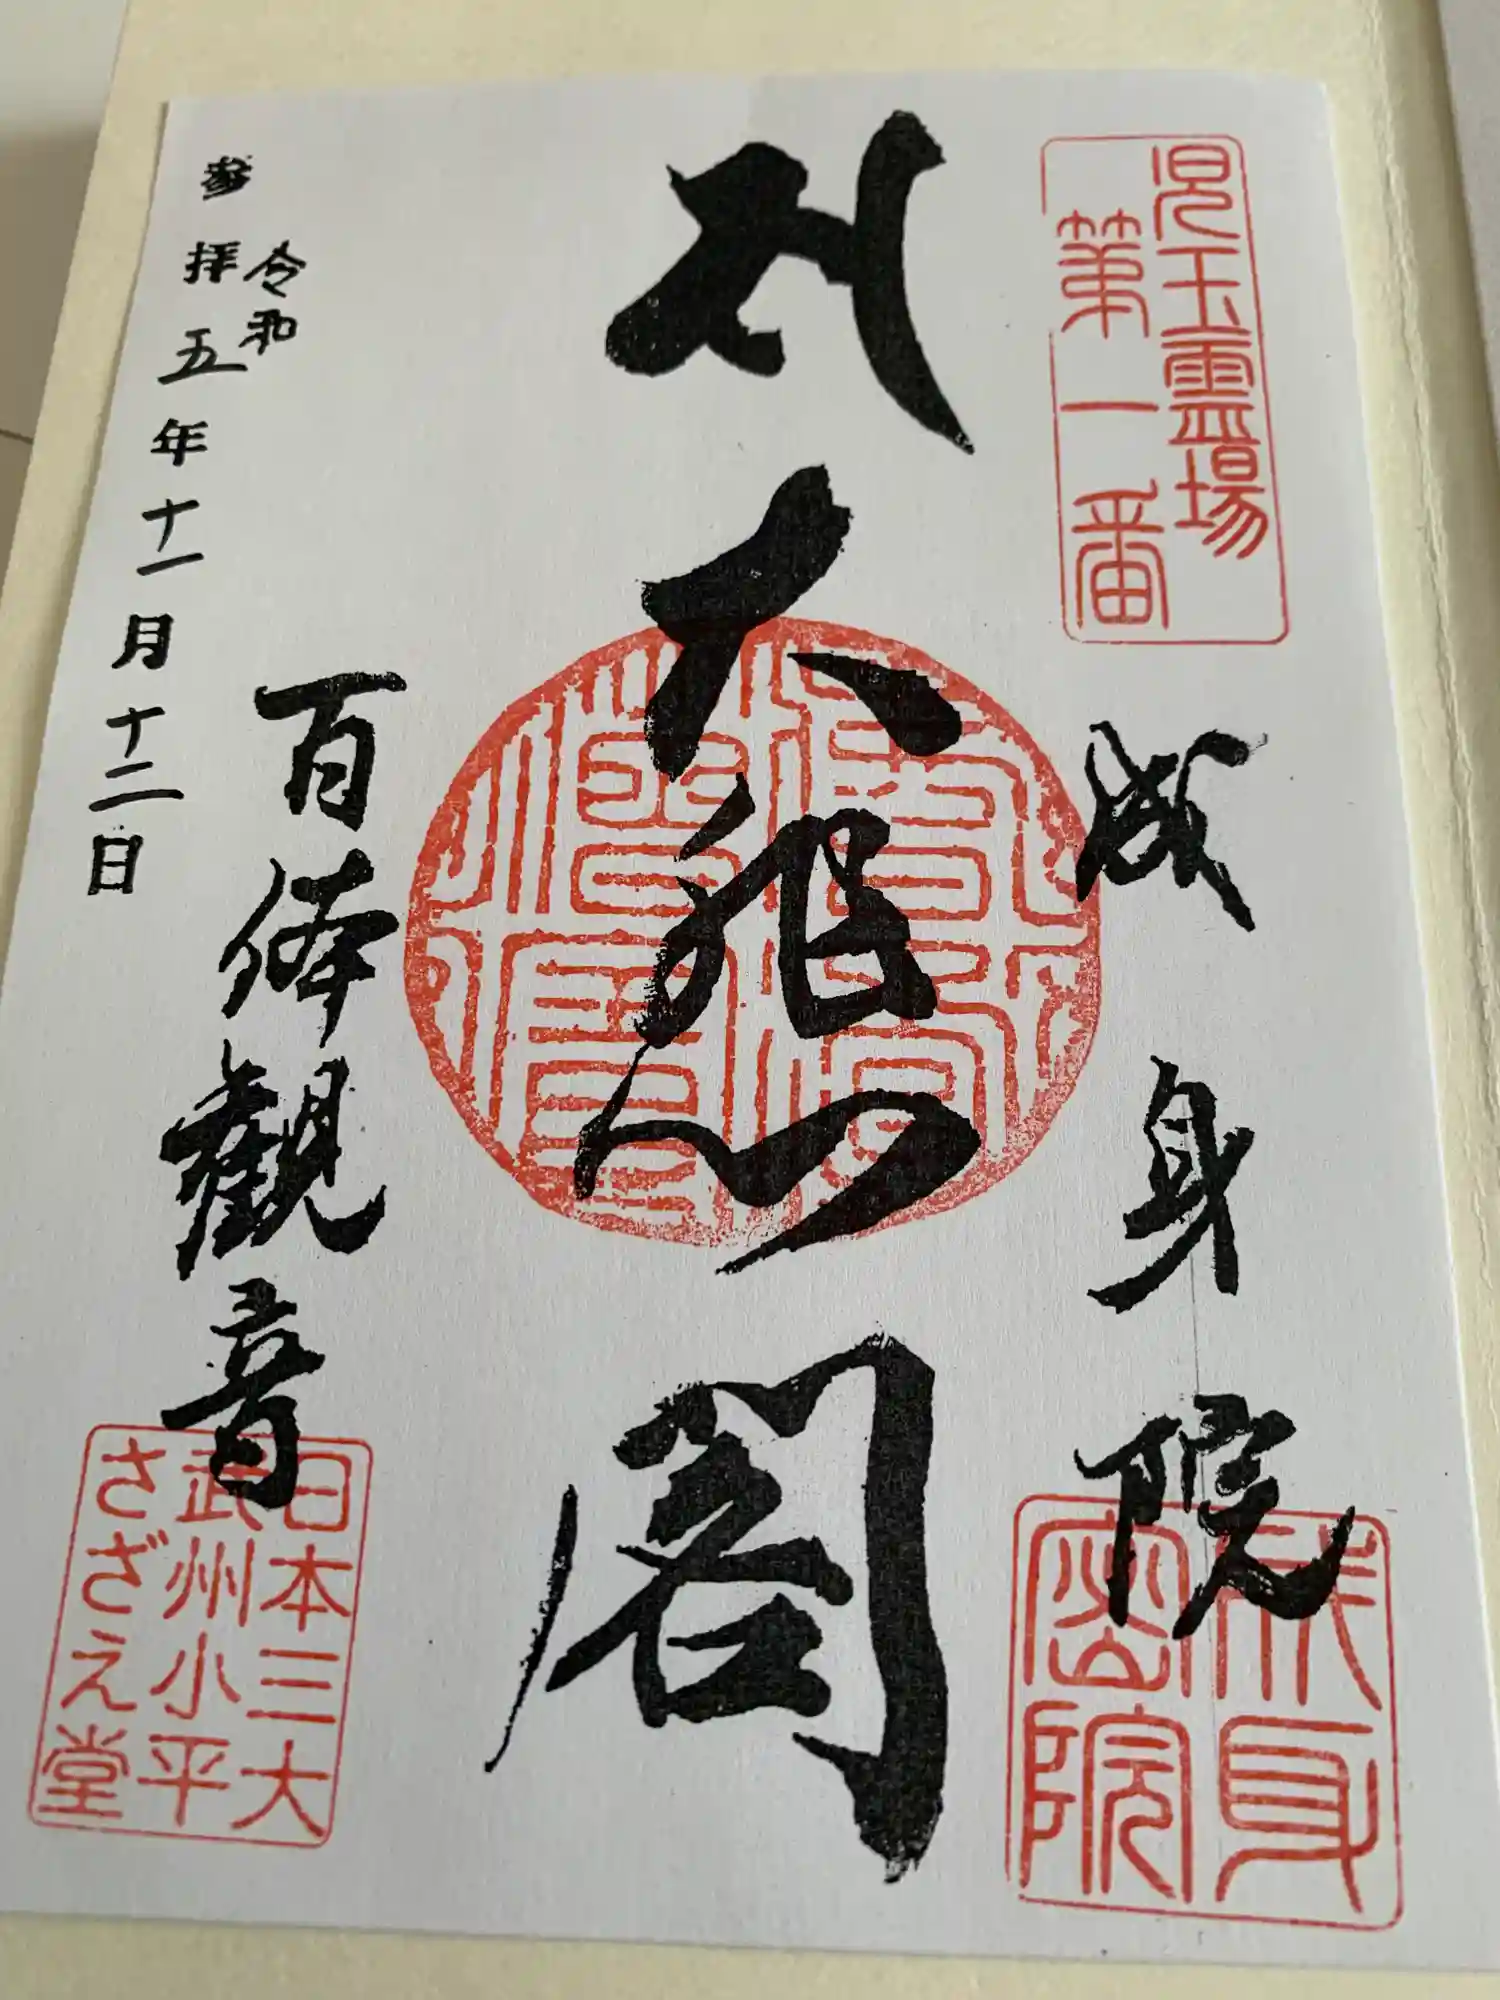 児玉霊場
第一番
成身院
成身
密院
大悲閣
百体観音
日本三大
武州小平
さざえ堂
令和
参拝五年十一月十二日